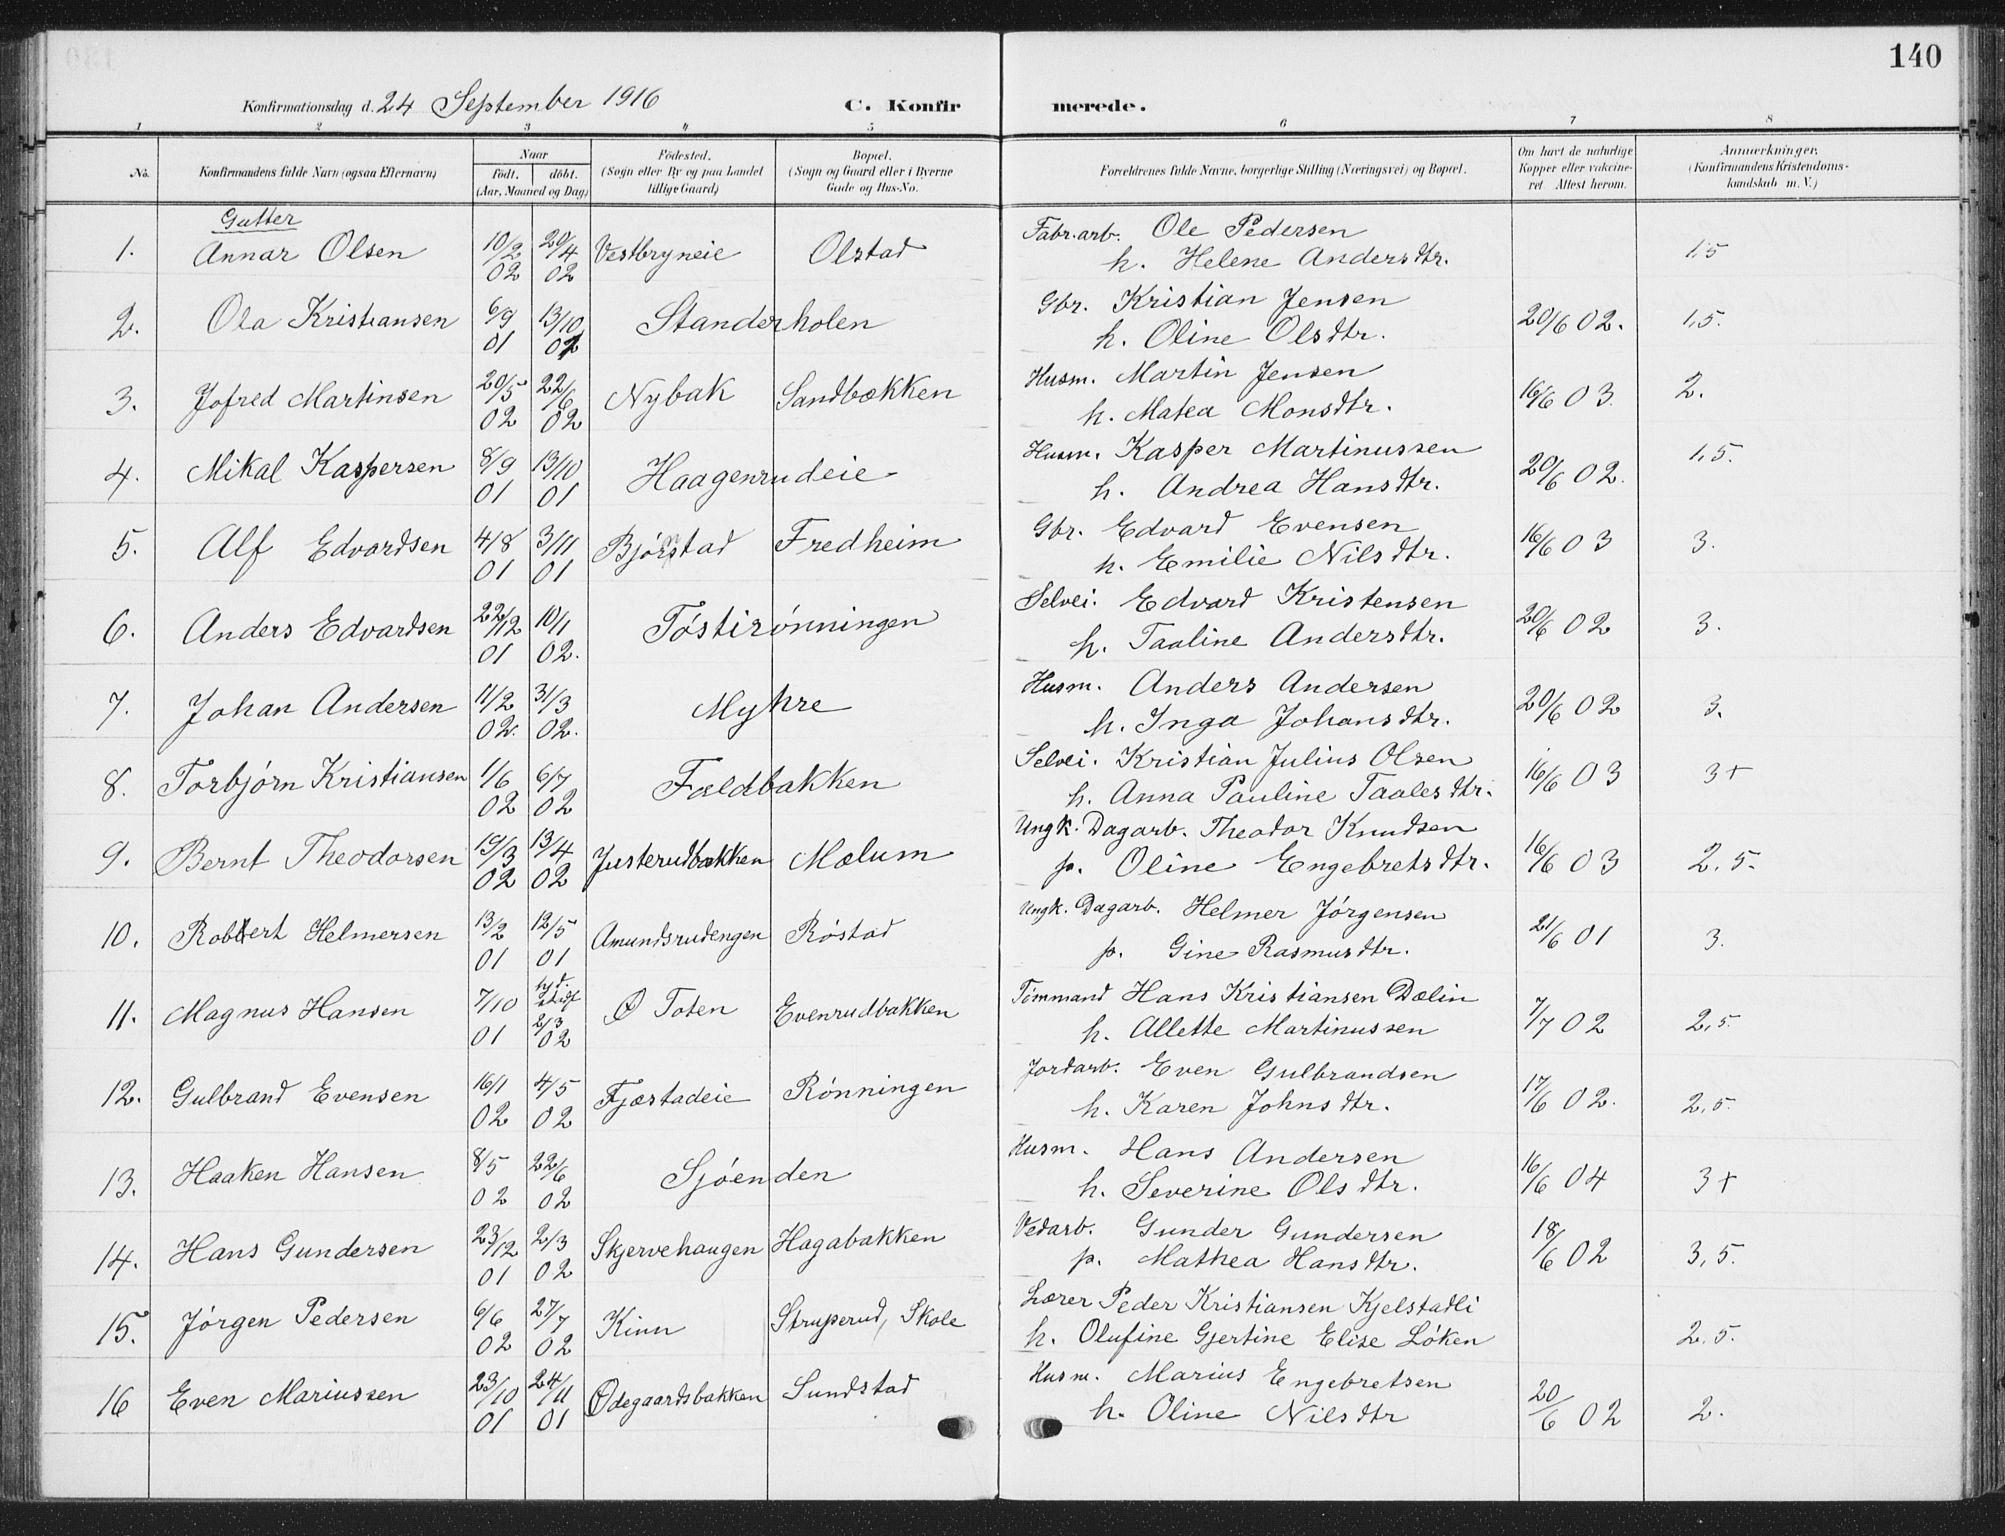 140
Konfirmationsdag d. 24 September 1916 C. Konfirmerede.
1 2 3 4 5 6 7 8
No. Konfirmandens fulde Navn (ogsaa Efternavn) Naar födt. döbt. (Aar, Maaned og Dag) Födested. (Sogn eller By og paa Landet tillige Gaard) Bopæl. (Sogn og Gaard eller i Byerne Gade og Hus-No. Forældrenes fulde Navne, borgerlige Stilling (Næringsvei) og Bopæl. Om havt de naturlige Kopper eller vakcineret Attest herom. Anmærkninger. (Konfirmandens Kristendomskundskab m. V.)
Gutter
1. Annar Olsen 10/2 02 20/4 02 Vestbryneie Olstad Fabr.arb. Ole Pedersen h. Helene Andersdtr. 1,5
2. Ola Kristiansen 6/9 01 13/10 02 Standerholen Gbr. Kristian Jensen h. Oline Olsdtr. 20/6 02. 1,5.
3. Jofred Martinsen 20/5 02 22/6 02 Nybak Sandbækken Husm. Martin Jensen h. Matea Monsdtr. 16/6 03. 2.
4. Mikal Kaspersen 8/9 01 13/10 01 Haagenrudeie Husm. Kasper Martinussen h. Andrea Hansdtr. 20/6 02. 1,5.
5. Alf Edvardsen 4/8 01 3/11 01 Bjørnstad Fredheim Gbr. Edvard Evensen h. Emilie Nilsdtr. 16/6 03 3.
6. Anders Edvardsen 22/12 01 10/1 02. Tøstirønningen Selvei. Edvard Kristensen h. Taaline Andersdtr. 20/6 02 3.
7. Johan Andersen 11/2 02. 31/3 02. Myhre Husm. Anders Andersen h. Inga Johansdtr. 20/6 02 3.
8. Torbjørn Kristiansen 1/6 02 6/7 02 Fældbakken Selvei. Kristian Julius Olsen h. Anna Pauline Taalesdtr. 16/6 03 3+
9. Bernt Theodorsen 19/3 02 13/4 02 Justerudbækken Mælum Ungk. Dagarb. Theodor Knudsen p. Oline Engebretsdtr. 16/6 03 2,5.
10. Robert Helmersen 13/2 01 12/5 01 Amundsrudengen Røstad Ungk. Dagarb. Helmer Jørgensen p. Gine Rasmusdtr. 21/6 01 3.
11. Magnus Hansen 7/10 01 hjd. 2/3 02 Ø Toten Evenrudbakken Tømmand Hans Kristiansen Dælin h. Allette Martinussen 7/7 02 2,5.
12. Gulbrand Evensen 16/1 02 4/5 02 Fjæstadeie Rønningen Jordarb. Even Gulbrandsen h. Karen Johnsdtr. 17/6 02. 2,5.
13. Haaken Hansen 8/5 02 22/6 02 Sjøenden Husm. Hans Andersen h. Severine Olsdtr. 16/6 04 3+
14. Hans Gundersen 23/12 01 2/3 02 Skjervehaugen Hagabakken Vedarb. Gunder Gundersen p. Mathea Hansdtr. 18/6 02 3,5.
15. Jørgen Pedersen 6/6 02 27/7 02 Kinn Struperud, Skole Lærer Peder Kristiansen Kjelstadli h. Olufine Gjertine Elise Løken 2,5.
16 Even Mariussen 23/10 01 24/11 01 Ødegaardsbakken Sundstad Husm. Marius Engebretsen h. Oline Nilsdtr 20/6 02 2.